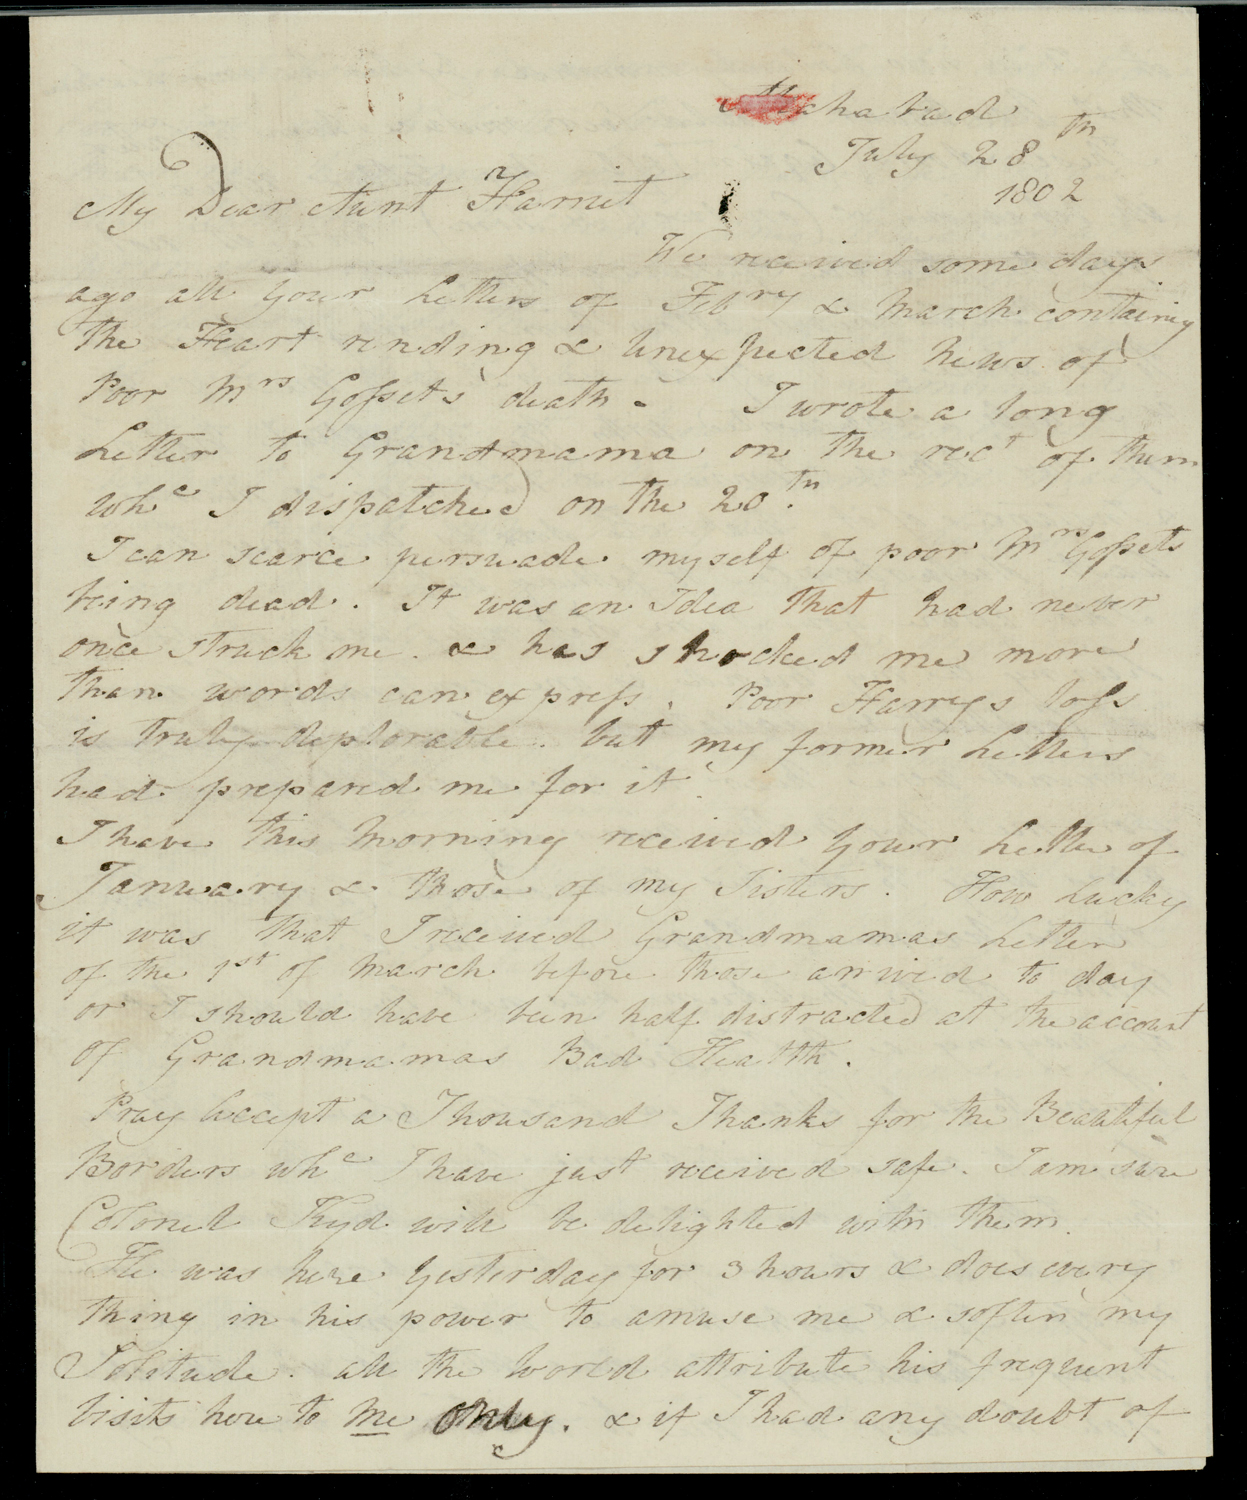 Allahabad
July 28th
1802
My Dear Aunt Harriet
We received some days
ago all your Letters of Febry & March containing
the Heart rending & Unexpected News of
Poor Mrs Gosset's death - I wrote a long
Letter to Grandmama on the rect of them
whc I dispatched on the 20th.
I can scarce persuade myself of poor Mrs Gossets
being dead. It was an Idea that had never
once struck me. & has shocked me more
than words can express. Poor Harrys loss
is truly deplorable. but my former Letters
had prepared me for it.
I have this Morning received Your Letter of
January & those of my Sisters. How Lucky
it was that I received Grandmamas Letter
of the 1st of March before those arrived to day
or I should have been half distracted at the account
of Grandmamas Bad Health.
Pray Accept a Thousand Thanks for the Beautiful
Borders whc I have just received safe. I am sure
Colonel Kyd will be delighted with them.
He was here Yesterday for 3 hours & does every
thing in his power to amuse me & soften my
Solitude. all the World attribute his frequent
Visits here to Me Only. & if I had any doubt of